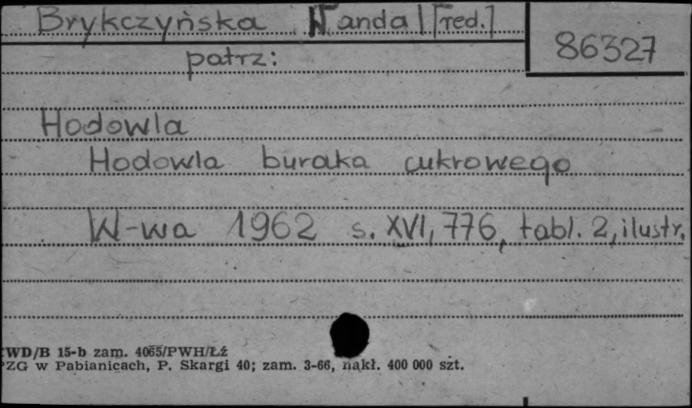 Brykczyńska Wanda [red.]
86327
patrz:
Hodowla
Hodowla buraka cukrowego
W-wa 1962 s. XVI, 776, tabl. 2, ilustr.
WD/B 15-b zam. 4065/PWH/Łź
PZG w Pabianicach, P. Skargi 40; zam. 3-66, nakł. 400 000 szt.